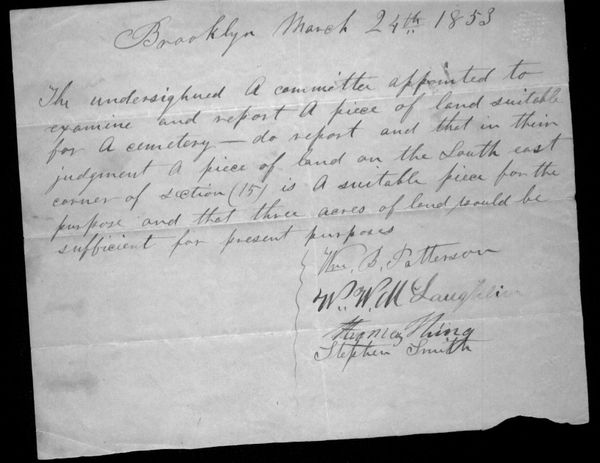 Brooklyn March 24th 1853
The undersighned A committee appointed to
examine and report A piece of land suitable
for A cemetery — do report and that in thier
judgment A piece of land on the South east
corner of section (15) is A suitable piece for the
purpose and that three acres of land would be
sufficient for present purposes
Wm. S. Patterson
Wm. W. McLaughlin
Thomas King
Stephen Smith